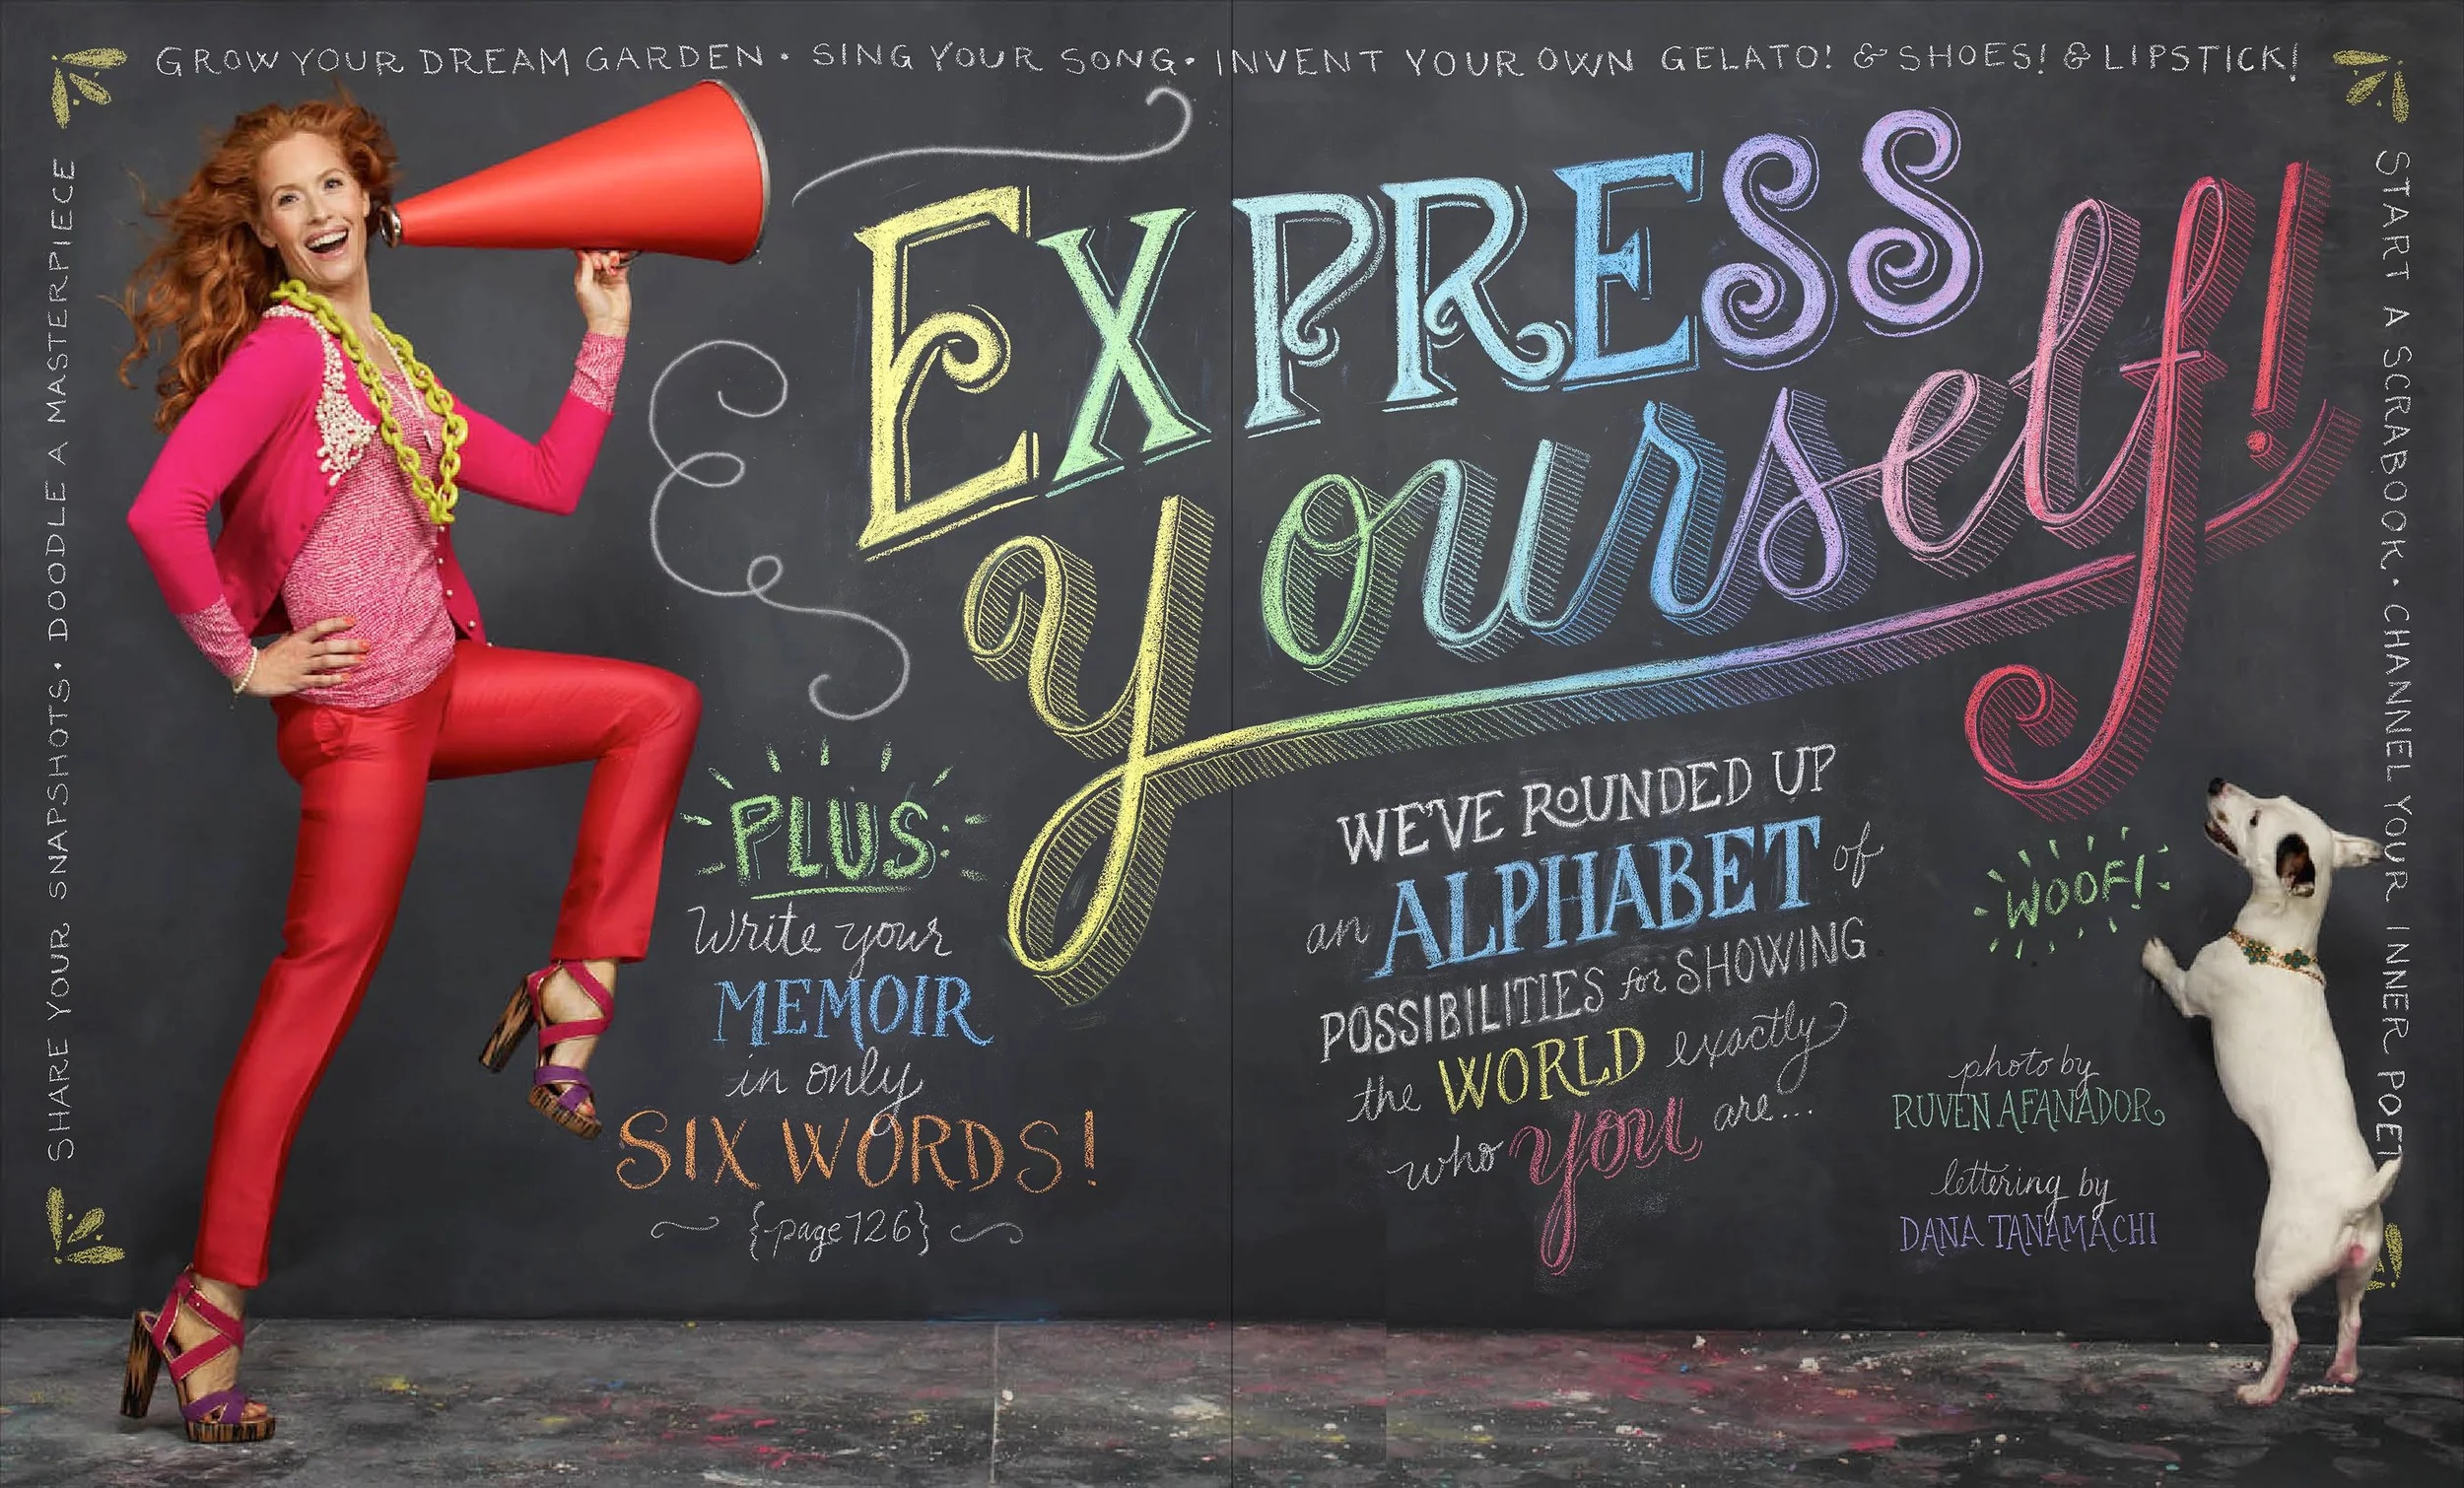 GROW YOUR DREAM GARDEN · SING YOUR SONG · INVENT YOUR OWN GELATO! & SHOES! & LIPSTICK!
SHARE YOUR SNAPSHOTS · DOODLE A MASTERPIECE
EXPRESS
yourself!
PLUS:
Write your
MEMOIR
in only
SIX WORDS!
{page 126}
WE'VE ROUNDED UP
an ALPHABET of
POSSIBILITIES for SHOWING
the WORLD exactly
who you are...
WOOF!
photo by
RUVEN AFANADOR
lettering by
DANA TANAMACHI
START A SCRAPBOOK · CHANNEL YOUR INNER POET